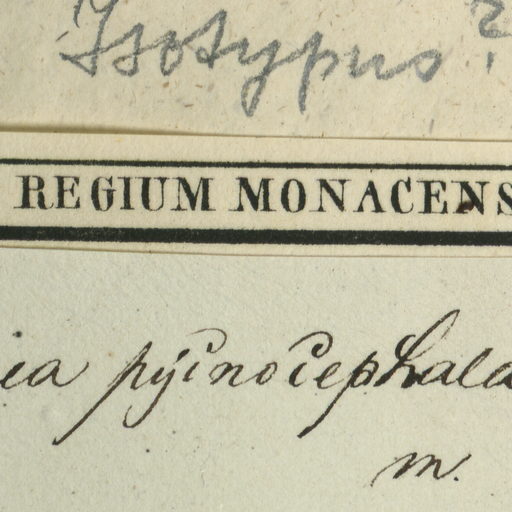 Isotypus?
REGIUM MONACENS
ea pycnocephala
m.